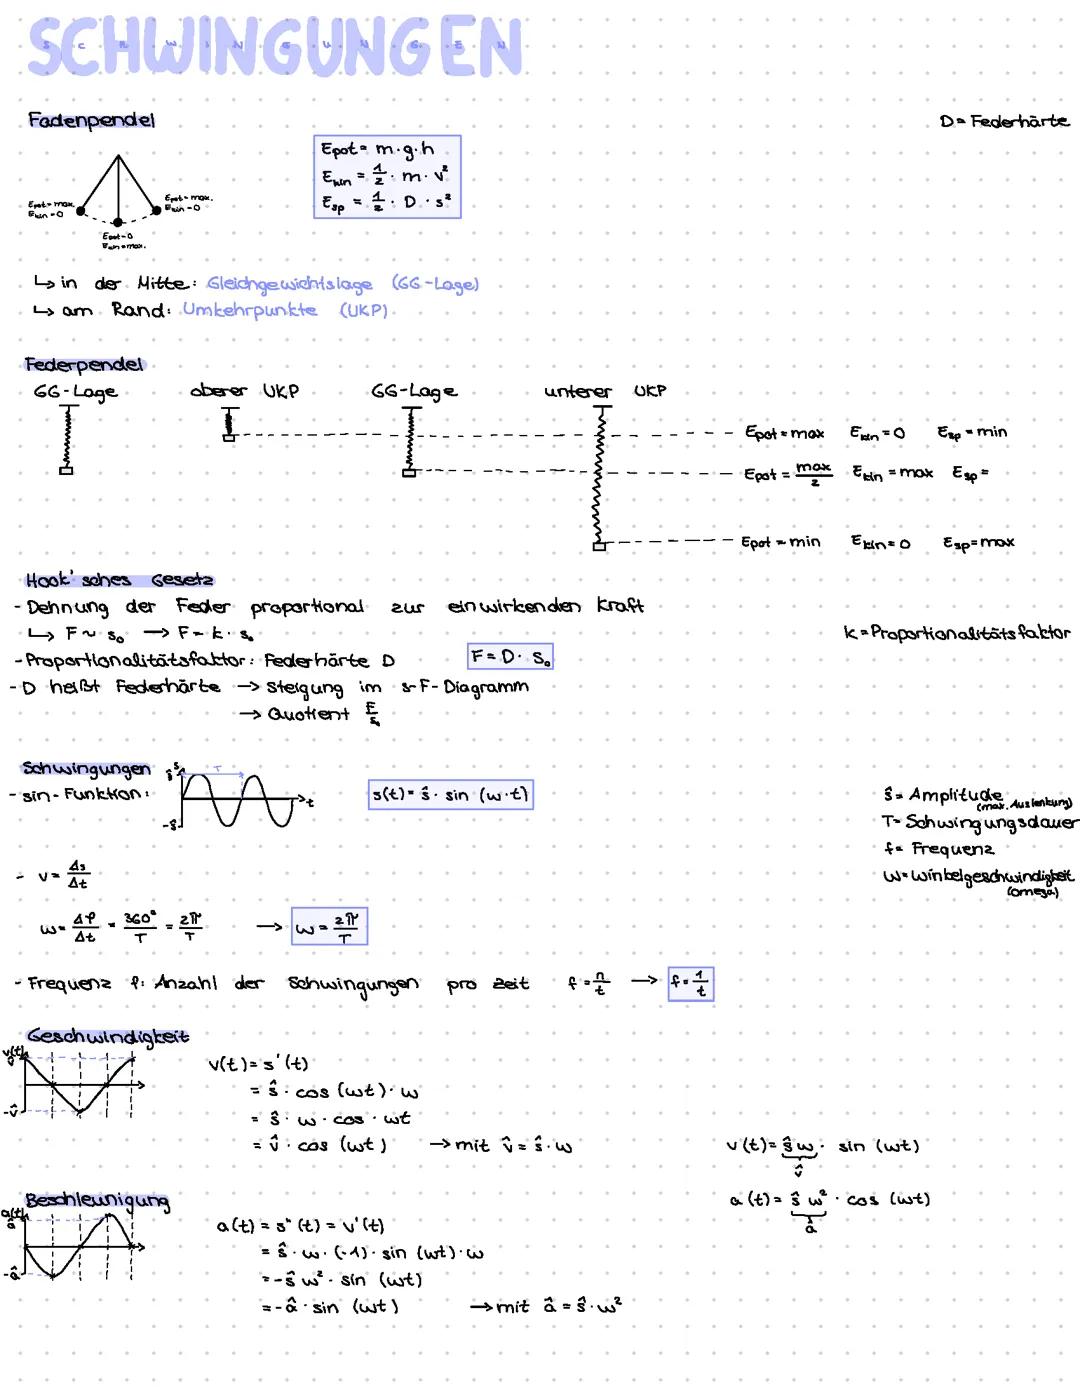 SCHWINGUNGEN
Fadenpendel
D = Federhärte
Epot = m·g·h
Ekin = 1/2 · m · v²
Esp = 1/2 · D · s²
Epot = max.
Ekin = 0
Epot = max.
Ekin = 0
Epot = 0
Ekin = max.
↳ in der Mitte: Gleichgewichtslage (GG-Lage)
↳ am Rand: Umkehrpunkte (UKP)
Federpendel
GG-Lage oberer UKP GG-Lage unterer UKP
Epot = max Ekin = 0 Esp = min
Epot = max/2 Ekin = max Esp =
Epot = min Ekin = 0 Esp = max
Hook'sches Gesetz
- Dehnung der Feder proportional zur einwirkenden Kraft
↳ F ~ s₀ → F = k · s₀
k = Proportionalitätsfaktor
- Proportionalitätsfaktor: Federhärte D F = D · s₀
- D heißt Federhärte → Steigung im s-F-Diagramm
→ Quotient F/s₀
Schwingungen
- sin-Funktion:
s
ŝ
T
t
-ŝ
s(t) = ŝ · sin (ω·t)
ŝ = Amplitude (max. Auslenkung)
T = Schwingungsdauer
f = Frequenz
ω = Winkelgeschwindigkeit (omega)
- v = Δs/Δt
ω = Δφ/Δt = 360°/T = 2π/T → ω = 2π/T
- Frequenz f: Anzahl der Schwingungen pro Zeit f = n/t → f = 1/t
Geschwindigkeit
v(t)
v̂
-v̂
v(t) = s'(t)
= ŝ · cos (ωt) · ω
= ŝ · ω · cos · ωt
= v̂ · cos (ωt) → mit v̂ = ŝ · ω
v(t) = ŝω · sin (ωt)
v̂
a(t) = ŝ ω² · cos (ωt)
â
Beschleunigung
a(t)
â
-â
a(t) = s''(t) = v'(t)
= ŝ · ω · (-1) · sin (ωt) · ω
= -ŝ ω² · sin (ωt)
= -â · sin (ωt) → mit â = ŝ · ω²